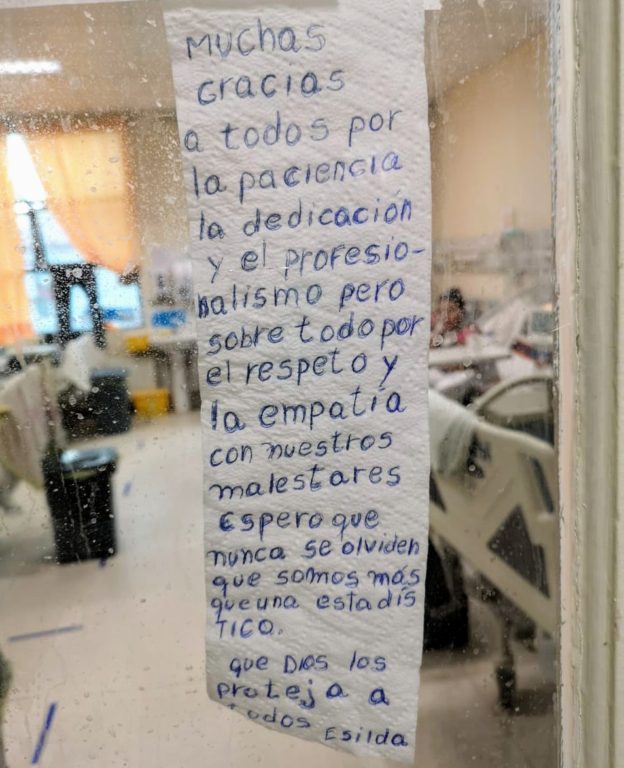 Muchas
Gracias
a todos por
la paciencia
la dedicación
y el profesio-
nalismo pero
sobre todo por
el respeto y
la empatía
con nuestros
malestares
Espero que
nunca se olviden
que somos más
que una estadís
TICO.
que Dios los
proteja a
todos Esilda